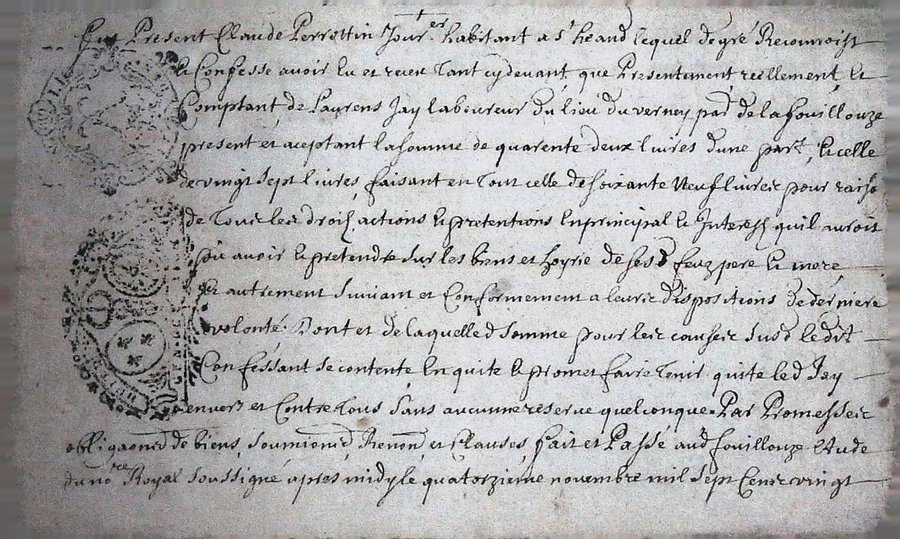 Fut Present Claude Perrottin Jour.er habitant a St heand lequel de gré Reconnoist
Et Confesse avoir Eu et receu Tant cydevant que Presentement, reellement, Et
Comptant, de Laurens Jay laboureur du lieu du verney par. de la fouillouze
present et aceptant la somme de quarente deux livres dune part, Et celle
de vingt sept livres, faisant en Tout celle de soixante Neuf livres pour raiso
de Tous les droits, actions Et pretentions En principal Et Interest quil auroit
pu avoir Et pretendre sur les biens et hoyrie de ses d feuz pere Et mere
et autrement suivant et Conformement a leurs dispositions de derniere
volonté. Dont et de laquelle d somme pour les causes susd le dit
Confessant se contente, En quite Et promet faire Tenir quite led Jay
envers et Contre Tous sans aucune reserve quelconque. Par Promesses
obligaons de biens, soumions, Renonons, et Clauses, fait et Passé aud fouillouze Etude
du nore Royal soussigné apres midy le quatorzieme novembre mil sept Cent vingt